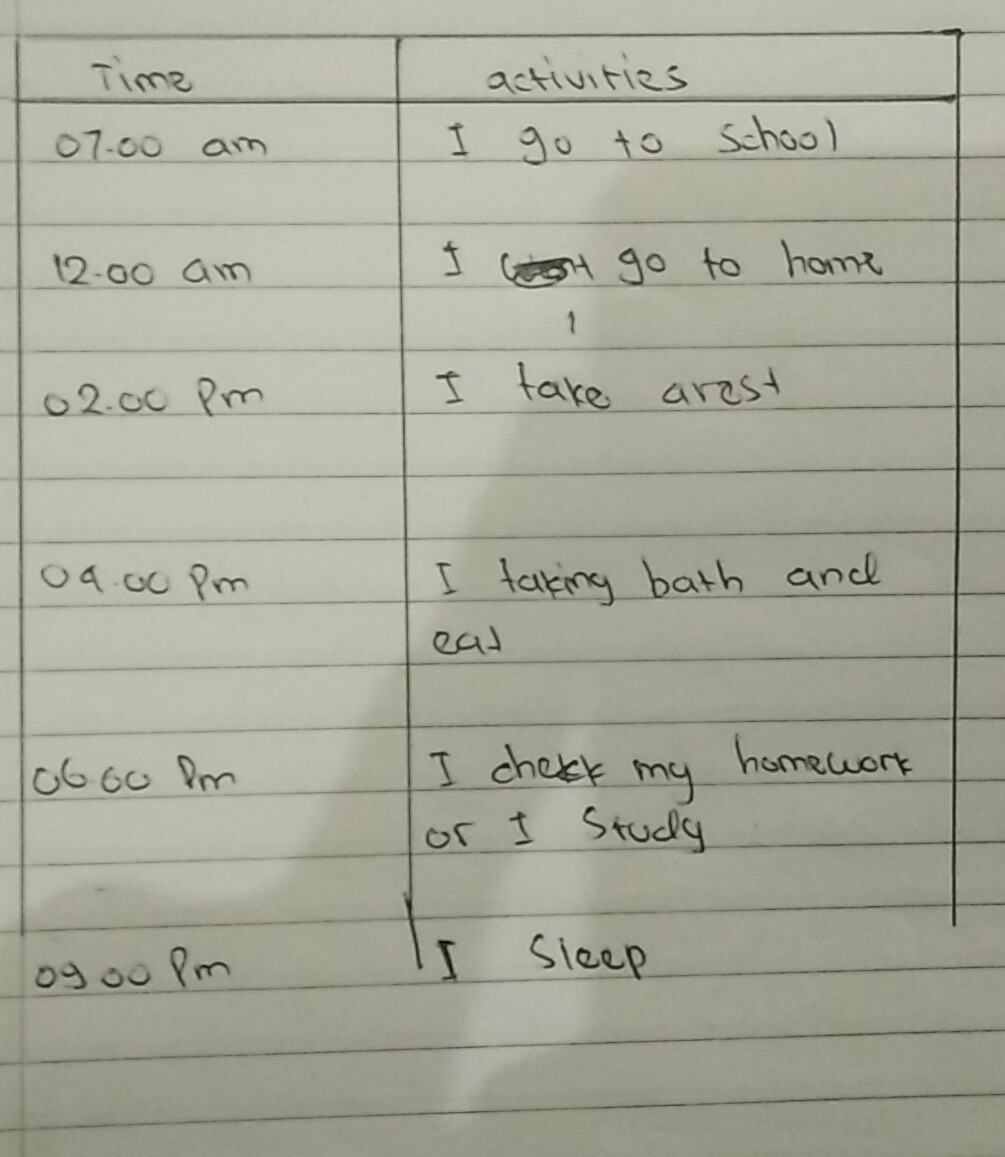 Time activities
07.00 am I go to school
12.00 am I go to home
02.00 Pm I take arest
04.00 Pm I taking bath and
eat
06 00 Pm I check my homework
or I Study
09 00 Pm I Sleep